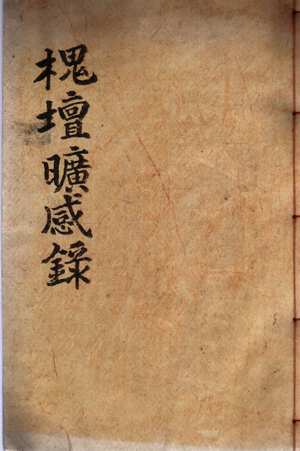 槐壇曠感錄